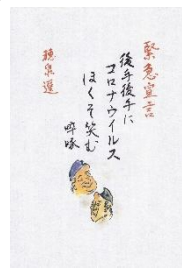 緊急宣言
後手後手に
コロナウイルス
ほくそ笑む
啐啄
聴泉選